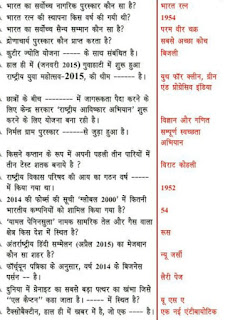 भारत का सर्वोच्च नागरिक पुरस्कार कौन सा है? भारत रत्न
भारत रत्न की स्थापना किस वर्ष की गयी थी? 1954
भारत का सर्वोच्च सैन्य सम्मान कौन सा है? परम वीर चक्र
द्रोणाचार्य पुरस्कार कौन प्राप्त करता है? सबसे अच्छा कोच
कुटीर ज्योति योजना ----- के साथ संबंधित है। बिजली
हाल ही में (जनवरी 2015) गुवाहाटी में शुरू हुआ
राष्ट्रीय युवा महोत्सव-2015, की थीम ------- है। यूथ फॉर क्लीन, ग्रीन
एंड प्रोग्रेसिव इंडिया
छात्रों के बीच ------- में जागरूकता पैदा करने के
लिए केन्द्र सरकार 'राष्ट्रीय आविष्कार अभियान' शुरू
करने के लिए योजना बना रही है। विज्ञान और गणित
निर्मल ग्राम पुरस्कार -----से जुड़ा हुआ है। सम्पूर्ण स्वच्छता
अभियान
किसने कप्तान के रूप में अपनी पहली तीन पारियों में
तीन टेस्ट शतक बनाये है? विराट कोहली
राष्ट्रीय विकास परिषद की आय का गठन वर्ष-----
में किया गया था। 1952
2014 की फोर्ब्स की सूची 'ग्लोबल 2000' में कितनी
भारतीय कम्पनियों को शामिल किया गया है? 54
'यामल पेनिनसुला' नामक सामरिक तेल और गैस वाला
क्षेत्र किस देश में स्थित है? रूस
अंतर्राष्ट्रीय हिंदी सम्मेलन (अप्रैल 2015) का मेजबान
कौन सा शहर है? न्यू जर्सी
फॉर्च्यून पत्रिका के अनुसार, वर्ष 2014 के बिजनेस
पर्सन -- है। लैरी पेज
दुनिया में ग्रेनाइट का सबसे बड़ा पत्थर का खंभा जिसे
"एल कैप्टन" कहा जाता है। ------में स्थित है? यू एस ए
टैक्सोबैक्टीन, हाल ही में खबर में है, जो एक ---- है। एक नई एंटीबायोटिक